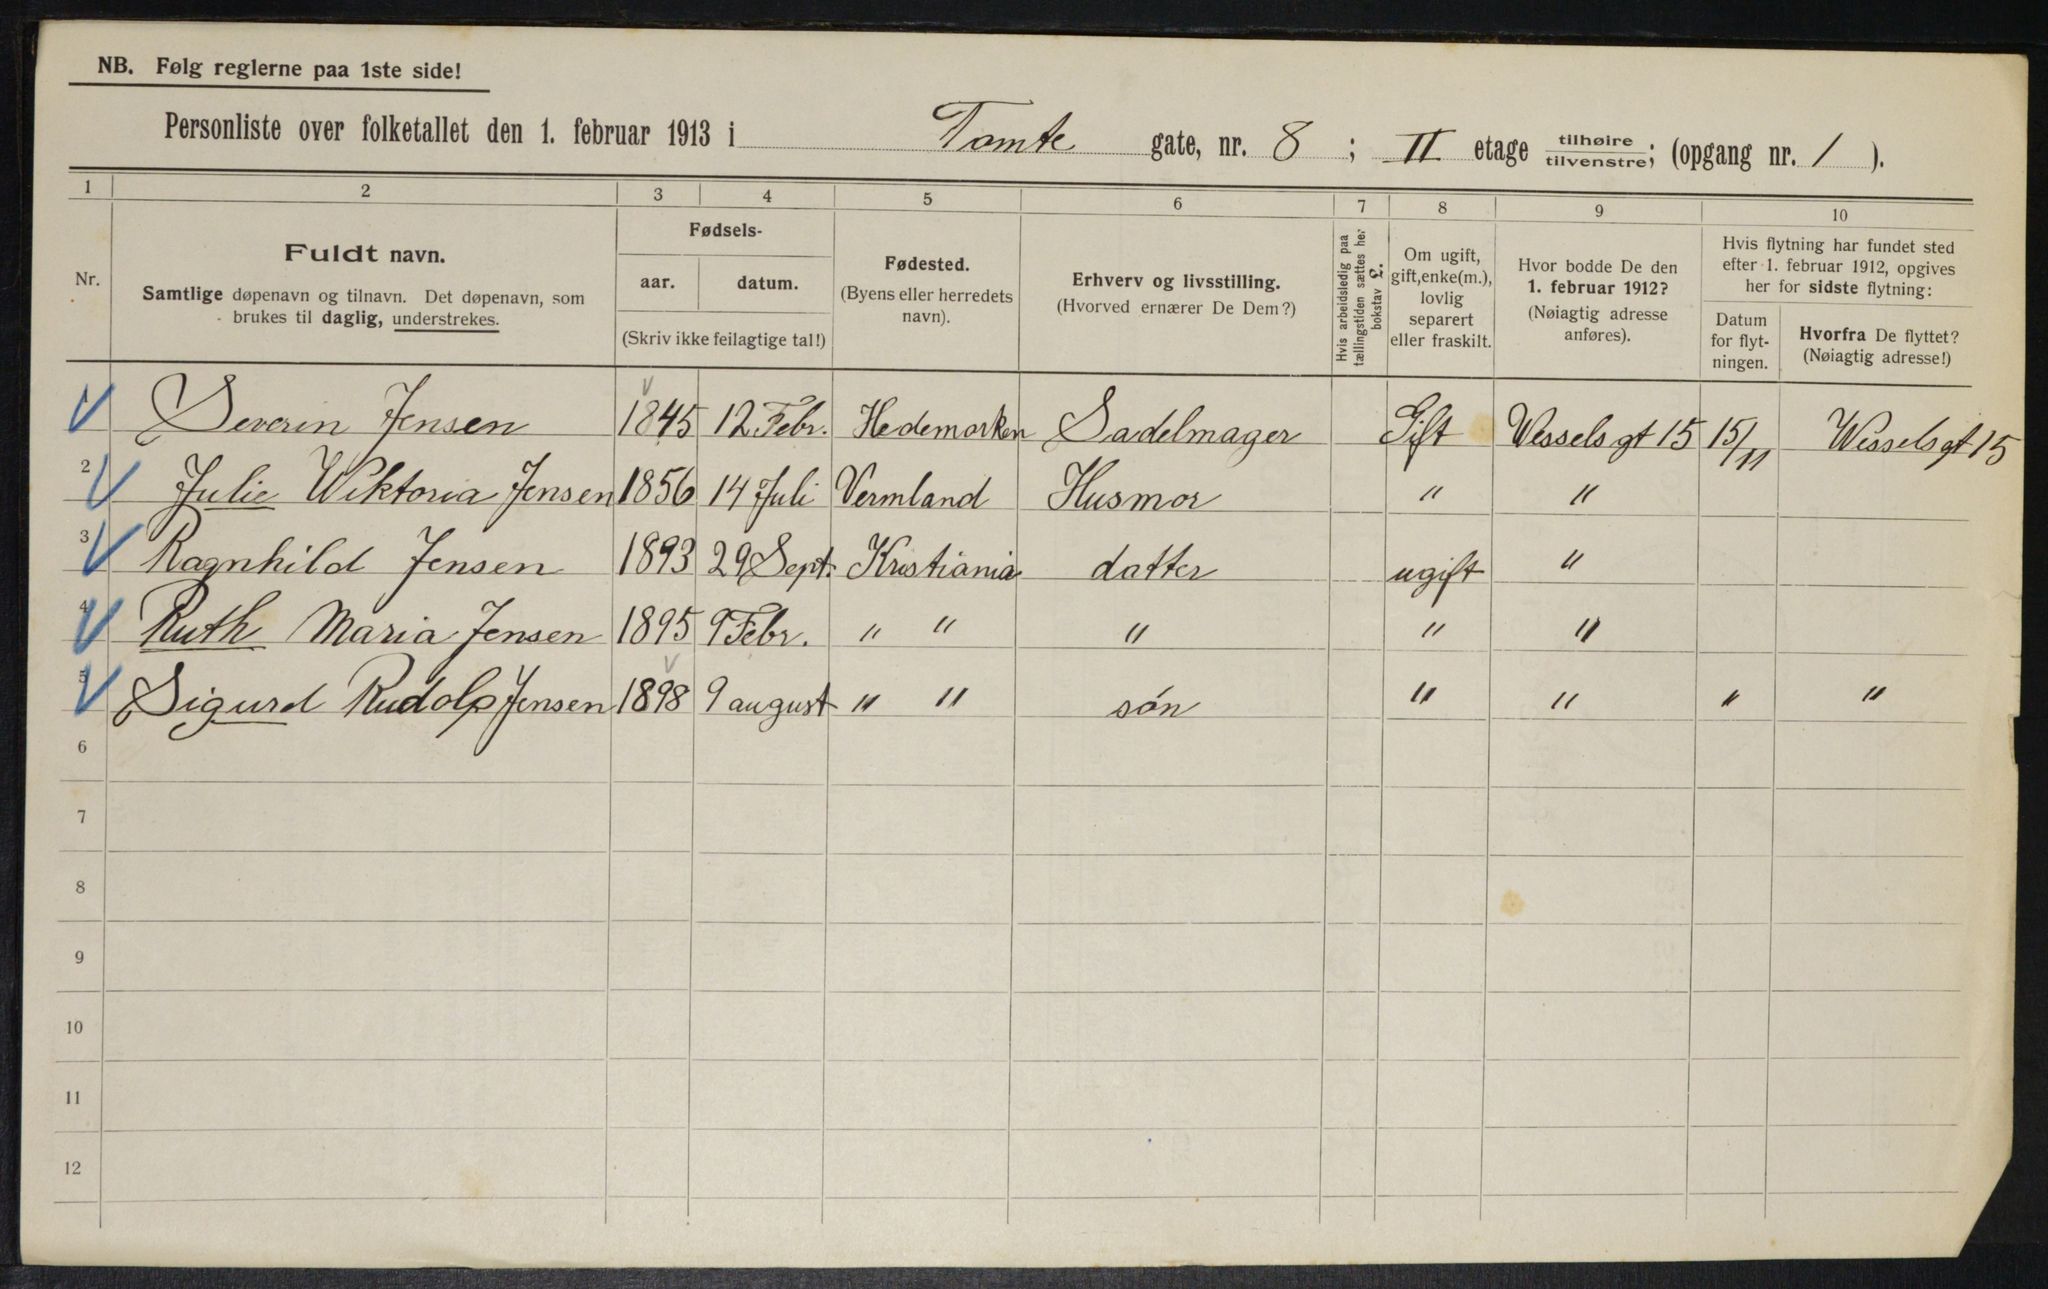 NB. Følg reglerne paa 1ste side!
Personliste over folketallet den 1. februar 1913 i Tomte gate, nr. 8 ; II etage tilhøire/tilvenstre; (opgang nr. 1 ).
1 2 3 4 5 6 7 8 9 10
Nr.
Fuldt navn.
Samtlige døpenavn og tilnavn. Det døpenavn, som
brukes til daglig, understrekes.
Fødsels-
aar. datum.
(Skriv ikke feilagtige tal!)
Fødested.
(Byens eller herredets
navn).
Erhverv og livsstilling.
(Hvorved ernærer De Dem?)
Hvis arbeidsledig paa
tællingstiden sættes her
bokstav L.
Om ugift,
gift, enke(m.),
lovlig
separert
eller fraskilt.
Hvor bodde De den
1. februar 1912?
(Nøiagtig adresse
anføres).
Hvis flytning har fundet sted
efter 1. februar 1912, opgives
her for sidste flytning:
Datum
for flyt-
ningen.
Hvorfra De flyttet?
(Nøiagtig adresse!)
1 Severin Jensen 1845 12 Febr. Hedemarken Sadelmager Gift Vessels gt 15 15/11 Wessels gt 15
2 Julie Wiktoria Jensen 1856 14 Juli Vermland Husmor " "
3 Ragnhild Jensen 1893 29 Sept. Kristiania datter ugift "
4 Ruth Maria Jensen 1895 9 Febr. " " " " "
5 Sigurd Rudolp Jensen 1898 9 august " " søn " " " "
6
7
8
9
10
11
12